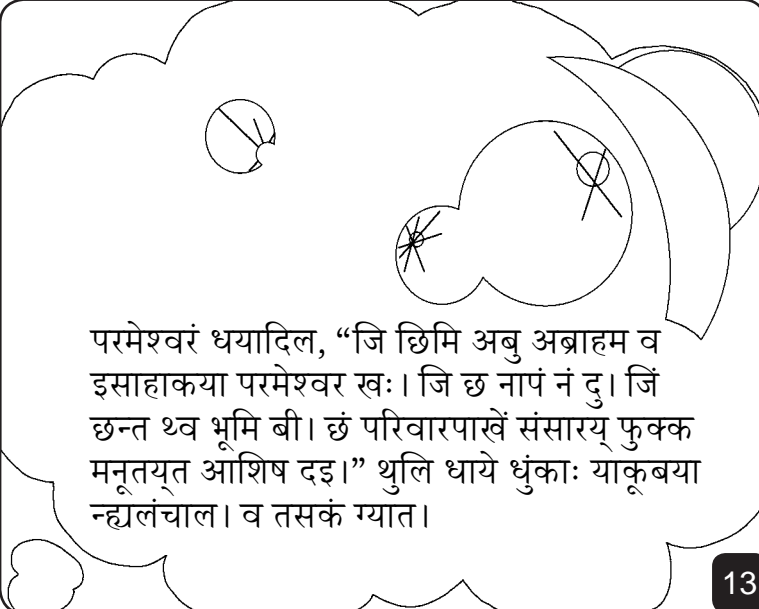 परमेश्वरं धयादिल, “जि छिमि अबु अब्राहम व
इसाहाकया परमेश्वर खः। जि छ नापं नं दु। जिं
छन्त थ्व भूमि बी। छं परिवारपाखें संसारय् फुक्क
मनूतय्‌त आशिष दइ।” थुलि धाये धुंकाः याकूबया
न्ह्यलंचाल। व तसकं ग्यात।
13